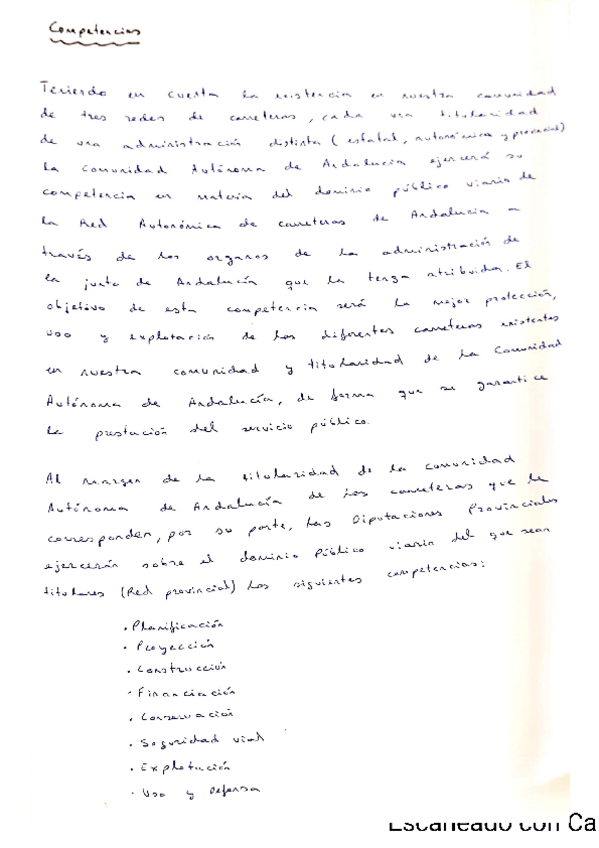 Competencias
Teniendo en cuenta la existencia en nuestra comunidad
de tres redes de carreteras, cada una titularidad
de una administración distinta (estatal, autonómica y provincial)
la Comunidad Autónoma de Andalucía ejercerá su
competencia en materia del dominio público viario de
la Red Autonómica de carreteras de Andalucía a
través de los organos de la administración de
la junta de Andalucía que la tenga atribuida. El
objetivo de esta competencia será la mejor protección,
uso y explotación de las diferentes carreteras existentes
en nuestra comunidad y titularidad de la Comunidad
Autónoma de Andalucía, de forma que se garantice
la prestación del servicio público.
Al margen de la titularidad de la comunidad
Autónoma de Andalucía de las carreteras que le
corresponden, por su parte, las Diputaciones Provinciales
ejercerán sobre el dominio público viario del que sean
titulares (Red provincial) las siguientes competencias:
• Planificación
• Proyección
• Construcción
• Financiación
• Conservación
• Seguridad vial
• Explotación
• Uso y Defensa
Escaneado con Ca